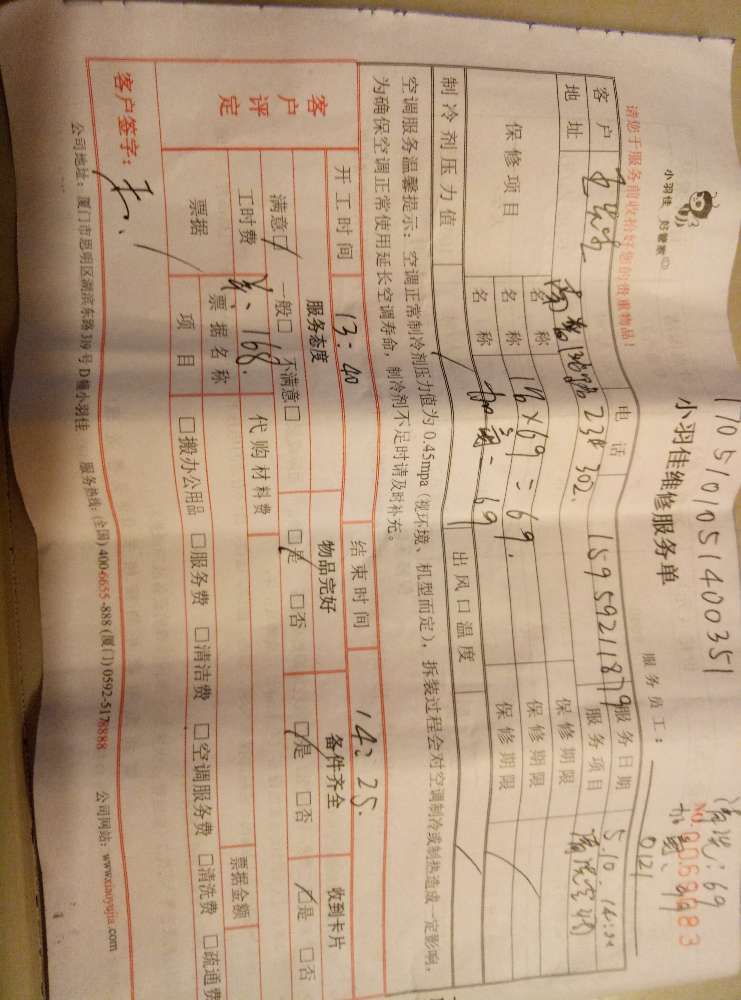 1705101051400351
清洗:69
小羽佳 好管家
小羽佳维修服务单
服务员工:
0121
NO
请您于服务前收拾好您的贵重物品!
客户
电话
15959211879
服务日期
5.10. 14:00
地址
302.
服务项目
清洗空调
保修项目
名称
1台×69=69.
保修期限
名称
保修期限
名称
=69
保修期限
制冷剂压力值
出风口温度
空调服务温馨提示:空调正常制冷剂压力值为 0.45mpa (视环境、机型而定),拆装过程会对空调制冷或制热造成一定影响,
为确保空调正常使用延长空调寿命,制冷剂不足时请及时补充。
客户评定
开工时间
13:40
结束时间
14:25.
服务态度
物品完好
备件齐全
收到卡片
满意□ 一般□ 不满意□
□是 □否
□是 □否
□是 □否
工时费
168.
代购材料费
票据
票据名称
票据金额
项目
□搬办公用品 □服务费 □清洁费 □空调服务费 □清洗费 □疏通费
客户签字:
公司地址:厦门市思明区湖滨东路319号D幢小羽佳 服务热线:(全国) 400-6655-888 (厦门) 0592-5178888 公司网站:www.xiaoyujia.com